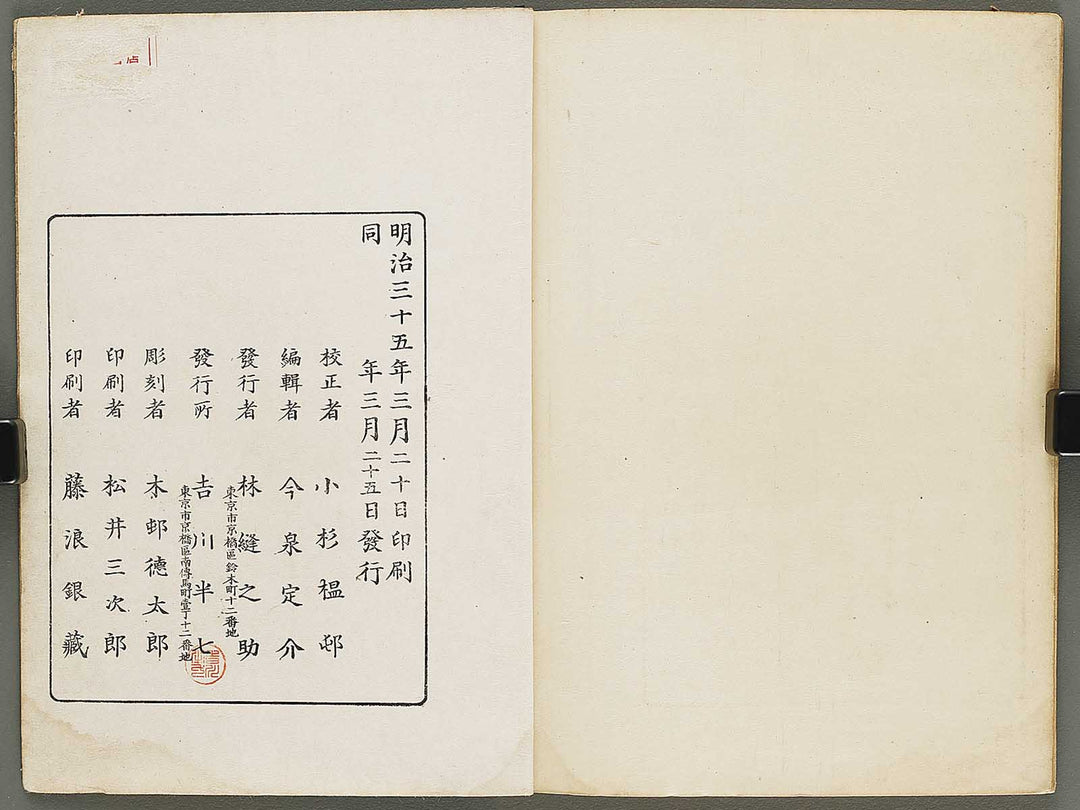 明治三十五年三月二十日印刷
同年三月二十五日發行
校正者 小杉榲邨
編輯者 今泉定介
發行者 林縫之助
東京市京橋區鈴木町十二番地
發行所 吉川半七
東京市京橋區南傳馬町壹丁十二番地
彫刻者 木邨徳太郎
印刷者 松井三次郎
印刷者 藤浪銀藏